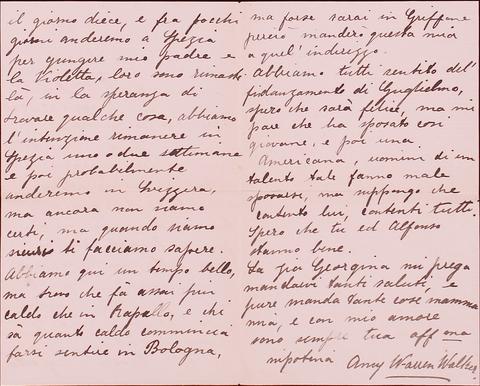 il giorno diece, e fra pocchi
giorni anderemo a Spezia
per giungere mio padre e
la Violetta, loro sono rimasti
là, in la speranza di
trovare qualche cosa, abbiamo
l'intenzione rimanere in
Spezia uno o due settimane
e poi probabilmente
anderemo in Svizzera,
ma ancora non siamo
certi, ma quando siamo
sicuri ti facciamo sapere.
Abbiamo qui un tempo bello,
ma trovo che fà assai più
caldo che in Rapallo, e chi
sà quanto caldo commincia
farsi sentire in Bologna,
ma forse sarai in Griffone
perciò mandero questa mia
a quel' indirezzo.
Abbiamo tutti sentito del'
fidanzamento di Guglielmo,
spero che sarà felice, ma mi
pare che ha sposato così
giovane, e poi una
Americana, uomini di un
talento tale fanno male
sposarsi, ma suppongo che
contento lui, contenti tutti.
Spero che tu ed Alfonso
stanno bene.
La zia Georgina mi prega
mandarvi tanti saluti, e
pure manda tante cose mamma
mia, e con mio amore
sono sempre tua affma
nipotina Amy Warren Walker